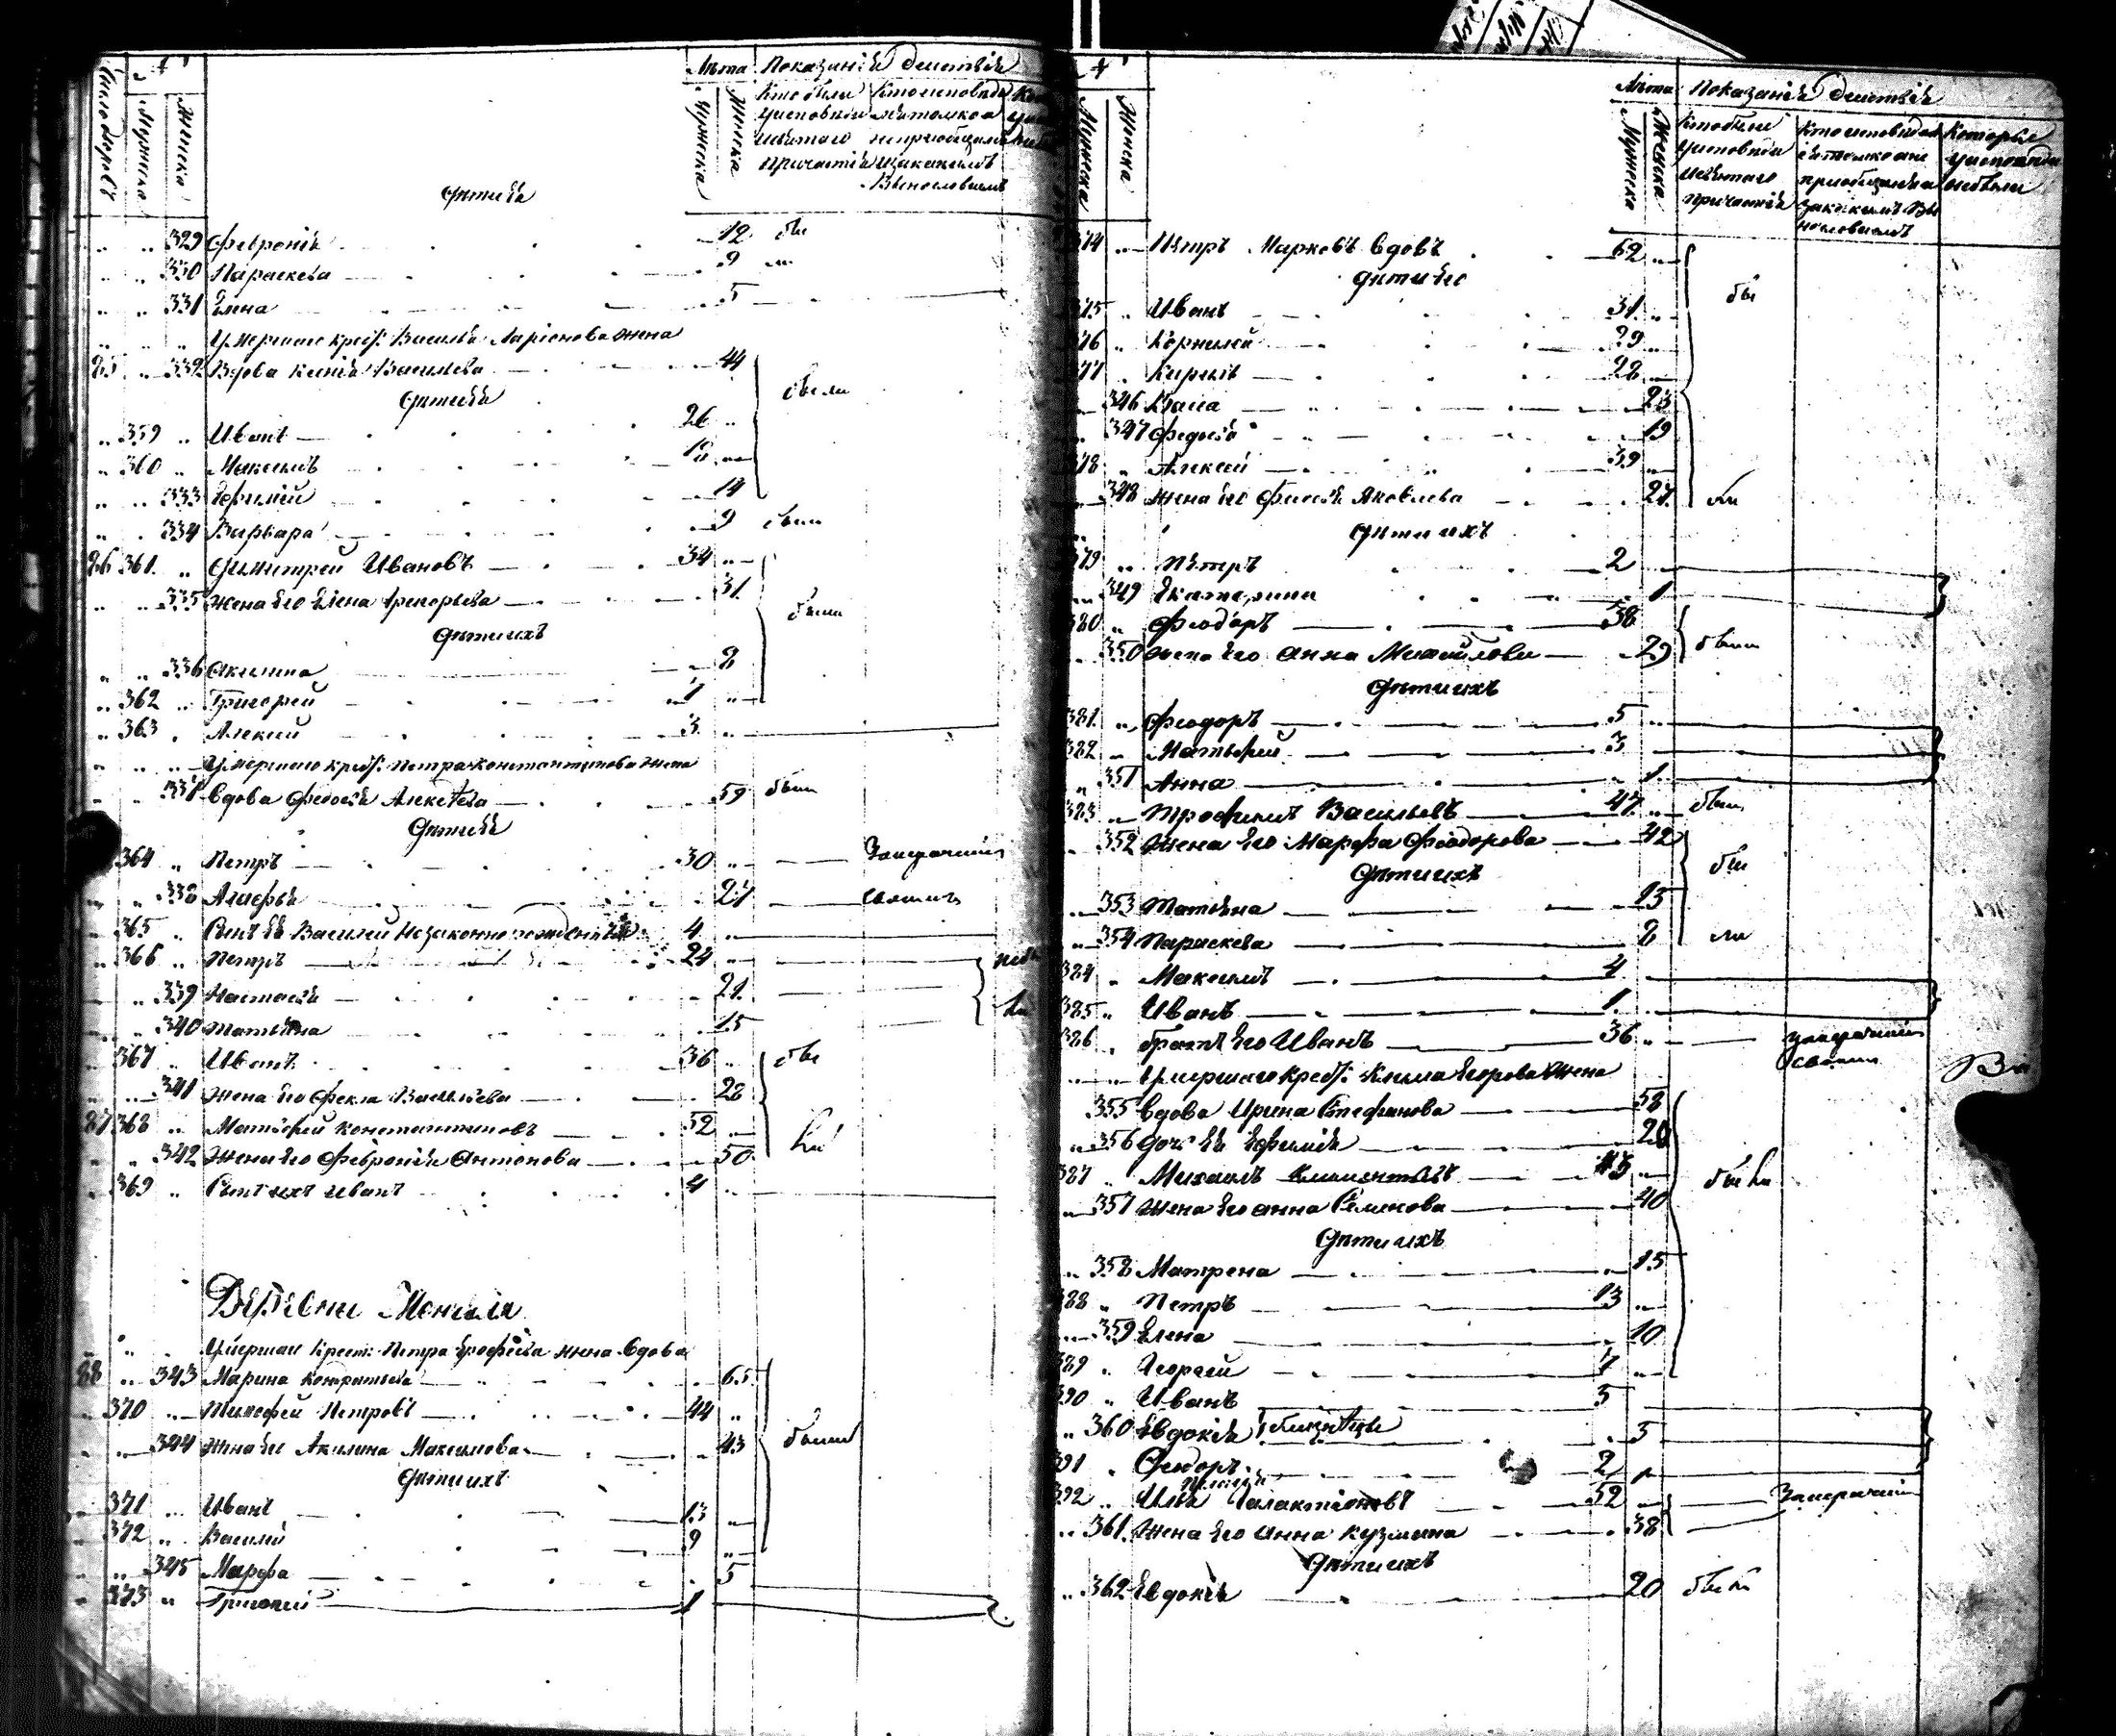 Число дворовъ Мужеска Женска Лѣта Показаніе действія
Мужеска Женска Кто были Кто исповѣда
у исповѣди и
святаго не приобщились
причастія и за какимъ
винословіемъ
Дѣти ея
329 Февронія 12 бы
330 Параскева 9 ли
331 Елена 5
Умершаго крест: Василья Ларіонова жена
85 332 Вдова Ксенія Васильева 44 были
Дѣти ея
359 Иванъ 26
360 Максимъ 18
333 Ефимія 14
334 Варвара 9 были
86 361 Димитрей Ивановъ 34
335 жена его Елена Григорьева 31 были
Дѣти ихъ
336 Акилина 8
362 Григорей 7
363 Алексей 3
Умершаго крест: Петра Константинова жена
337 вдова Федосья Алексѣева 59 были
Дѣти ея
364 Петръ 30
338 Агафья 27
365 Сынъ ея Василей незаконнорожденный 4
366 Петръ 24
339 Настасья 21
340 Татьяна 15
367 Иванъ 36 бы
341 жена его Фекла Васильева 28
87 368 Матвѣй Константиновъ 52 ли
342 Жена его Февронія Антонова 50
369 Сынъ ихъ Иванъ 4
Деревни
Умершаго Крест: Петра Ерофѣева жена вдова
88 343 Марина Кондратьева 65
370 Тимофей Петровъ 44
344 жена его Акилина Максимова 43 были
Дѣти ихъ
371 Иванъ 13
372 Василій 9
345 Марфа 5
373 Григорій 1
Мужеска Женска Лѣта Показаніе действія
Мужеска Женска Кто были Кто исповѣдал Которые
у исповѣди у исповѣди
святаго приобщился не были
причастія за какимъ ви
нословіемъ
374 Петръ Марковъ вдовъ 62
Дѣти его бы
375 Иванъ 31
376 Корнилей 29
377 Кирилъ 28
346 23
347 Федосья 19
378 Алексей 39
348 жена его Федосья Яковлева 27 ли
Дѣти ихъ
379 Петръ 2
349 Екатерина 1
380 Феодоръ 38
350 жена его Анна Михайлова 29 были
Дѣти ихъ
381 Феодоръ 5
382 Матьвей 3
351 Анна 1
383 Трофимъ Васильевъ 47 были
352 Жена его Марфа Феодорова 42
Дѣти ихъ бы
353 Татьяна 15
354 Параскева 8 ли
384 Максимъ 4
385 Иванъ 1
386 братъ его Иванъ 36
Умершаго крест: Клима Егорова жена
355 вдова Ирина Стефанова 58
356 дочь ея Ефимія 20
387 Михаилъ Климентьевъ 43 были
357 жена его Анна Семенова 40
Дѣти ихъ
358 Матрена 15
388 Петръ 13
359 Елена 10
389 Георгей 7
390 Иванъ 5
360 Евдокія близнецы 5
391 Федоръ 2
392 Илья Галактіоновъ 52
361 Жена его Анна Кузмина 38
Дѣти ихъ
362 Евдокія 20 была